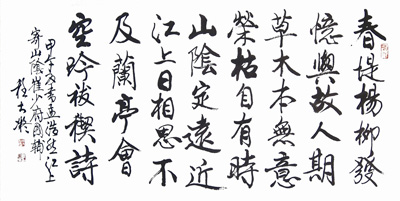 春堤楊柳發
憶與故人期
草木本無意
榮枯自有時
山陰定遠近
江上日相思不
及蘭亭會
空吟祓禊詩
甲午書孟浩然江上
寄山陰崔少府國輔